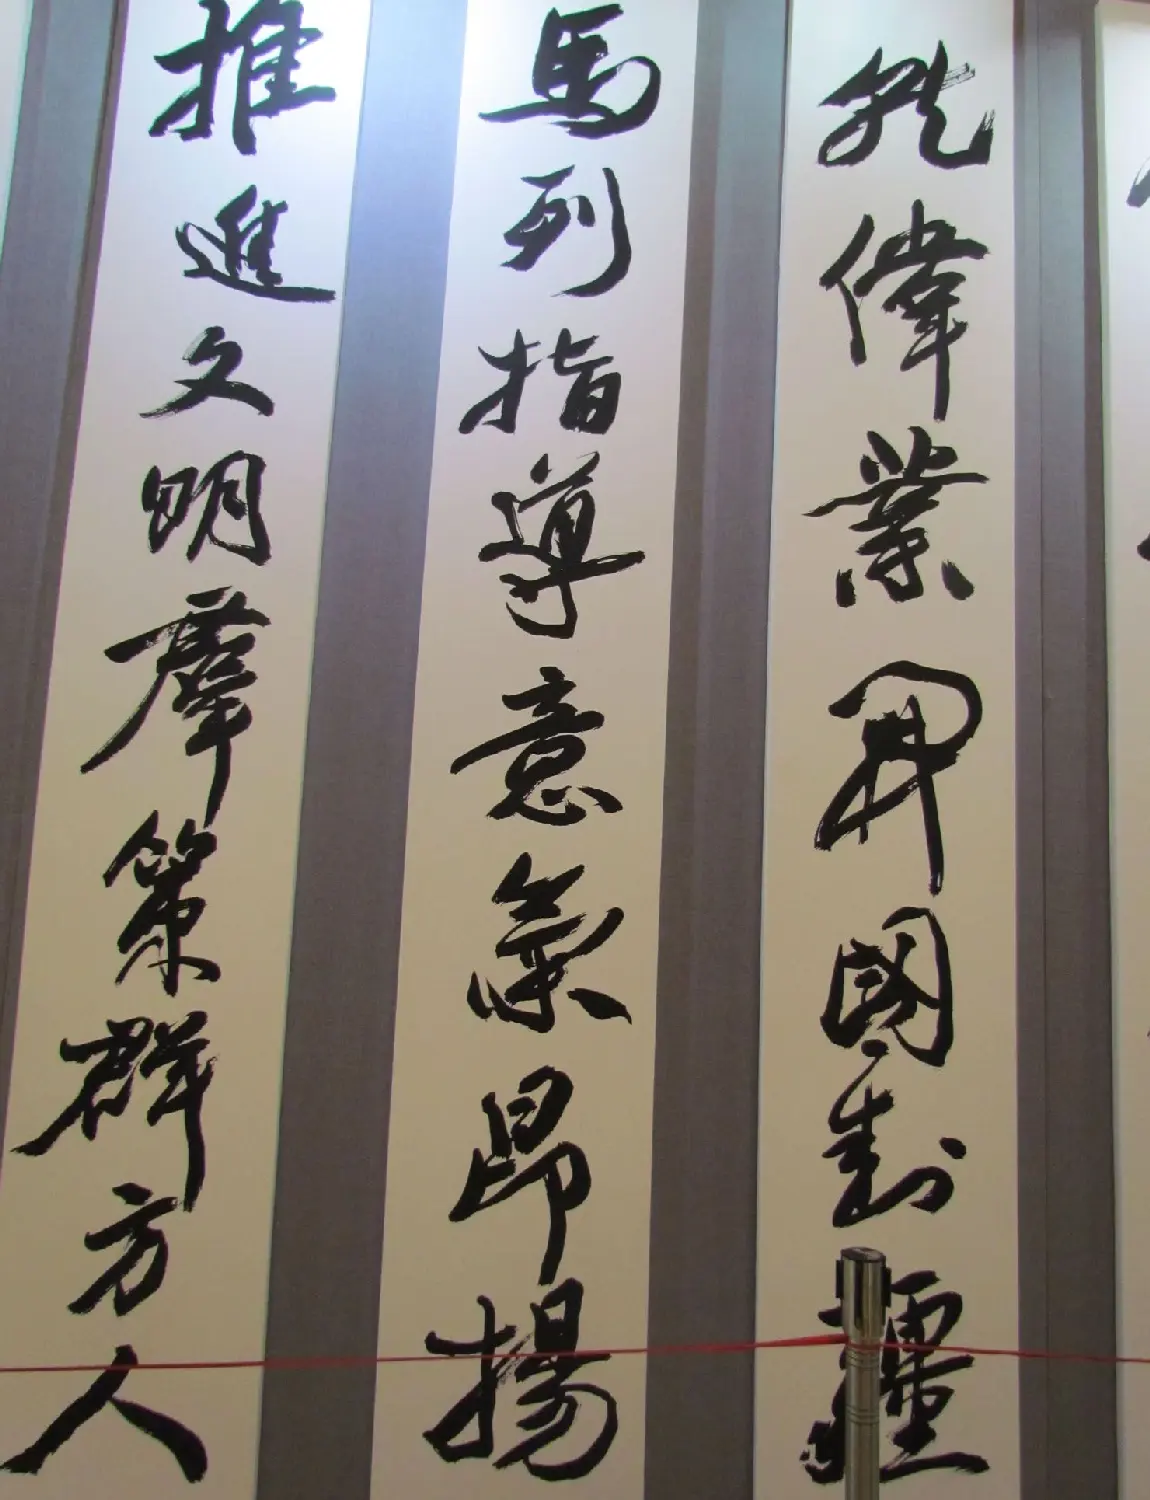 就偉業開國封疆
馬列指導意氣昂揚
推進文明羣策群方人